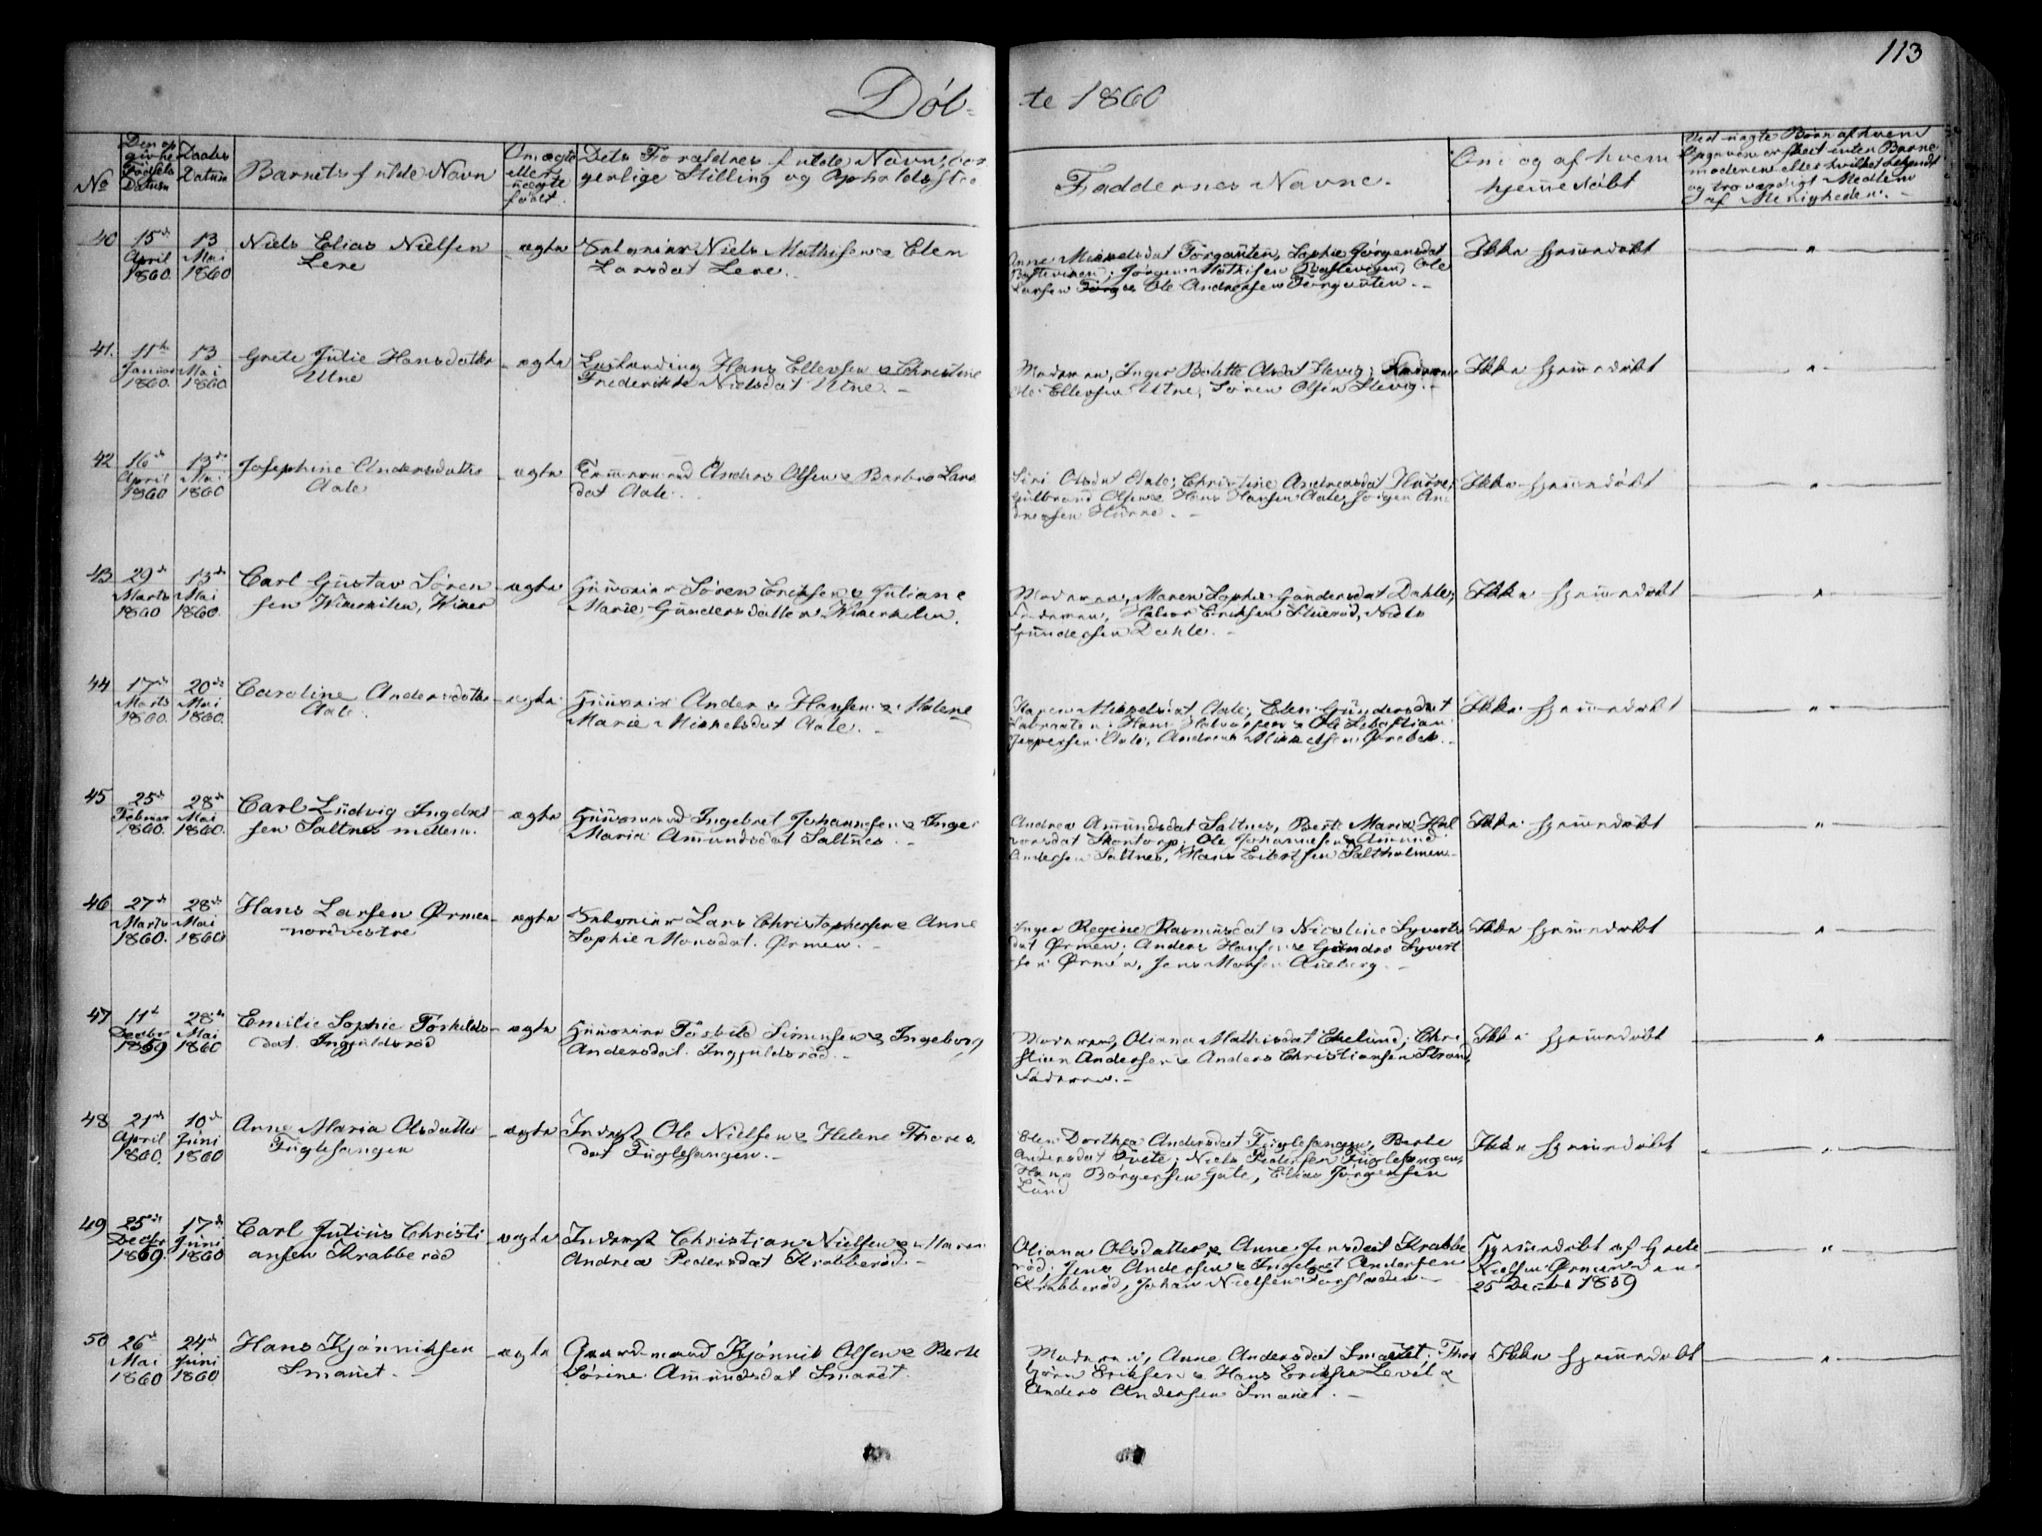 113
Döb-
te 1860
No
Den op
givne
Fødsels
Datum
Daabs
Datum
Barnets fulde Navn
Om ægte
eller
uægte
født.
Dets Forældres fulde Navn, bor
gerlige Stilling og Opholdsste
Faddernes Navne.
Om og af hvem
hjem̅edöbt
Ved uægte Børn af hvem
Opgaven er skeet enten Barne
moderen eller hvilket bekjendt
og troværdigt Medlem
af Menigheden.
40
15de
April
1860.
13
Mai
1860
Niels Elias Nielsen
Lere
ægte
Selveier Niels Mathisen & Elen
Larsdat Lere.
Anne
Torgauten, Sophie Jörgensdat
Jörgen Mathisen
Ole
Larsen
Ole Andreasen Torgauten.
Ikke hjem̅edöbt
"
41.
11te
Januar
1860.
13
Mai
1860
Grete Julie Hansdatter
Utne
ægte
Hans Ellevsen & Christine
Frederikke Nielsdat Utne.
Moderen, Inger
Olsdat Slevig;
Ole Ellevsen Utne, Sören Olsen Slevig.
Ikke hjem̅edöbt
"
42
16de
April
1860
13de
Mai
1860
Josephine Andersdatter
Aale
ægte
Töm̅ermand Anders Olsen & Barbro Lars
dat Aale.
Siri Olsdat Aale; Christine Andreasdat Hurre;
Gulbrand Olsen & Hans Hansen Aale, Jörgen An
dreasen Hurre.
Ikke hjem̅edöbt
"
43
29de
Marts
1860
13de
Mai
1860.
Carl Gustav Sören
sen
ægte
Huuseier Sören Eriksen & Juliane
Marie Gundersdatter
Moderen, Maren Sophie Gundersdat Dahle;
Faderen, Halvor Eriksen
Niels
Gundersen Dahle.
Ikke hjem̅edöbt
"
44
17de
Marts
1860.
20de
Mai
1860.
Caroline Andersdatter
Aale.
ægte
Huuseier Anders Hansen & Helene
Marie Mikkelsdat Aale.
Karen Mikkelsdat Aale; Elen Gundersdat
Hans Halvorsen & Ole Sebastian
Jeppersen Aale, Andreas Mikkelsen
Ikke hjem̅edöbt
"
45
25de
Februar
1860.
28de
Mai
1860.
Carl Ludvig Ingebret
sen Saltnes mellem.
ægte
Huusmand Ingebret Johannesen & Inger
Maria Amundsdat Saltnes.
Andrea Amundsdat Saltnes, Berte Maria Hal
vorsdat
Ole Johannesen & Amund
Andersen Saltnes, Hans Eilertsen Saltholmen
Ikke hjem̅edöbt
"
46
27de
Marts
1860.
28de
Mai
1860
Hans Larsen Ørmen
nordvestre
ægte
Selveier Lars Christophersen & Anne
Sophie Monsdat. Ørmen.
Inger Regine Rasmusdat & Nicoline Syverts
dat Ørmen; Anders Hansen & Gunder Syvert
sen Ørmen, Jens Monsen
Ikke hjem̅edöbt
"
47
11te
Decbr
1859
28de
Mai
1860
Emilie Sophie Torkilds
dat. Ingjuldsröd
ægte
Huuseier Torkild Simensen & Ingeborg
Andersdat. Ingjuldsröd.
Moderen, Oliana Mathisdat Ekelund; Chri
stian Andersen & Anders Christiansen Strand
Faderen.
Ikke hjem̅edöbt
"
48
21de
April
1860.
10de
Juni
1860
Anne Maria Olsdatter
Fuglesangen
ægte
Inderst Ole Nielsen & Helene Thores
dat Fuglesangen.
Elen Dorthea Andersdat Fuglesangen, Berte
Andersdat Tvete; Niels Pedersen Fuglesangen,
Hans Börgersen Gate, Elias Jörgensen
Lund
Ikke hjem̅edöbt
"
49
25de
Decbr
1859.
17de
Juni
1860
Carl Julius Christi
ansen Krabberöd
ægte
Inderst Christian Nielsen & Maren
Andrea Pedersdat Krabberöd.
Oliana Olsdatter & Anne Jensdat Krabbe
röd; Jens Andersen & Ingebret Andersen
Krabberöd, Johan Nielsen
Hjem̅edöbt af Grete
Nielsen Ørmen den
25 Decbr 1859
"
50
26de
Mai
1860
24de
Juni
1860
Hans Kjönniksen
Smauet.
ægte
Gaardmand Kjönnik Olsen & Berte
Sörine Amundsdat Smauet.
Moderen, Anne Andersdat Smauet; Thor
björn Eriksen & Hans Eriksen
Anders Andersen Smauet.
Ikke hjem̅edöbt
"